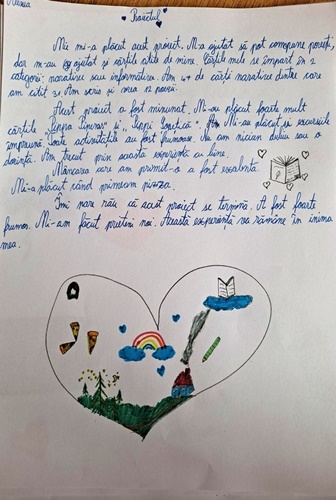 Proiectul
Mie mi-a plăcut acest proiect. M-a ajutat să pot compune povești,
dar m-au ajutat și cărțile citite de mine. Cărțile mele se împart în 2
categorii: narative sau informative. Am 4+ de cărți narative dintre care
am citit 3. Am scris și vreo 12 poezii.
Acest proiect a fost minunat. Mi-au plăcut foarte mult
cărțile și "Pippi Șosețica". Am Mi-au plăcut și excursiile
împreună. Toate activitățile au fost frumoase. Nu am niciun dubiu sau o
dorință. Am trecut prin această experiență cu bine.
Mâncarea care am primit-o a fost excelentă.
Mi-a plăcut când primeam pizza.
Îmi pare rău că acest proiect se termină. A fost foarte
frumos. Mi-am făcut prieteni noi. Această experiență va rămâne în inima
mea.